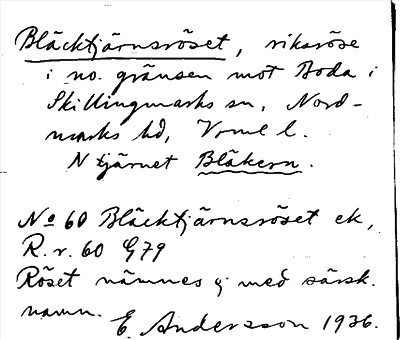 Bläcktjärnsröset, riksröse
i no. gränsen mot Boda i
Skillingmarks sn, Nord-
marks hd, Vrml l.
N tjärnet Bläkern.
No 60 Bläcktjärnsröset ek,
R. r. 60 G79
Röset nämnes ej med särsk.
namn.
E. Andersson 1936.